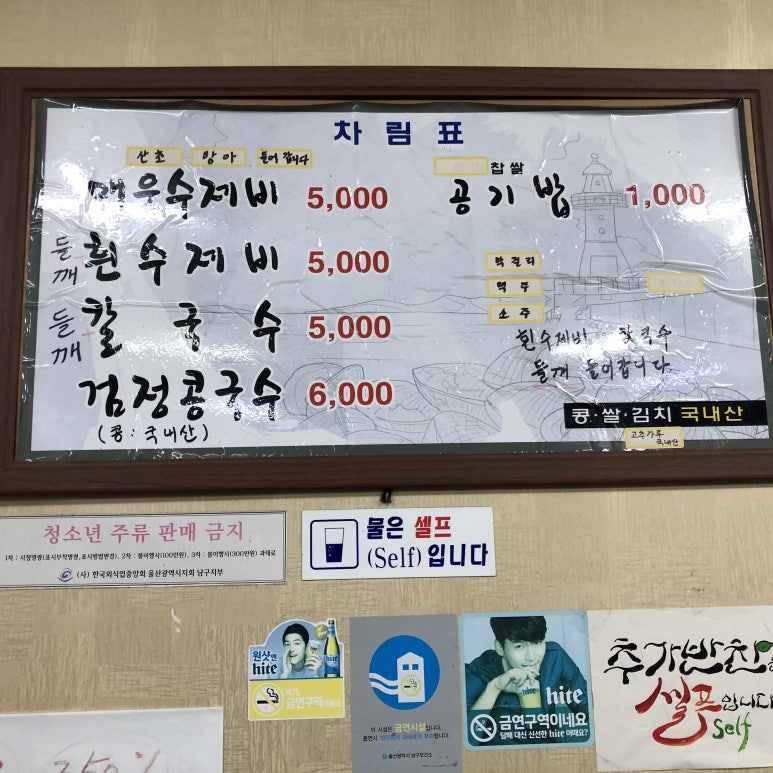 차림표
산초 방아 들어갑니다
매운수제비 5,000
들깨 흰수제비 5,000
들깨 칼국수 5,000
검정콩국수 6,000
(콩:국내산)
찹쌀
공기밥 1,000
막걸리
맥주
소주
흰수제비 칼국수
들깨 들어갑니다.
콩·쌀·김치 국내산
고추가루
국내산
청소년 주류 판매 금지
1차 : 시정명령(표시부착명령, 표시방법변경), 2차 : 불이행시(100만원), 3차 : 불이행시(300만원) 과태료
(사) 한국외식업중앙회 울산광역시지회 남구지부
물은 셀프
(Self)입니다
원샷엔
hite
여기,
금연구역이네요
이 시설은 금연시설입니다.
흡연시 10만원의 과태료가 부과됩니다.
울산광역시 남구보건소
hite
금연구역이네요
담배 대신 신선한 hite 어때요?
추가반찬은
셀프입니다
Self
250%